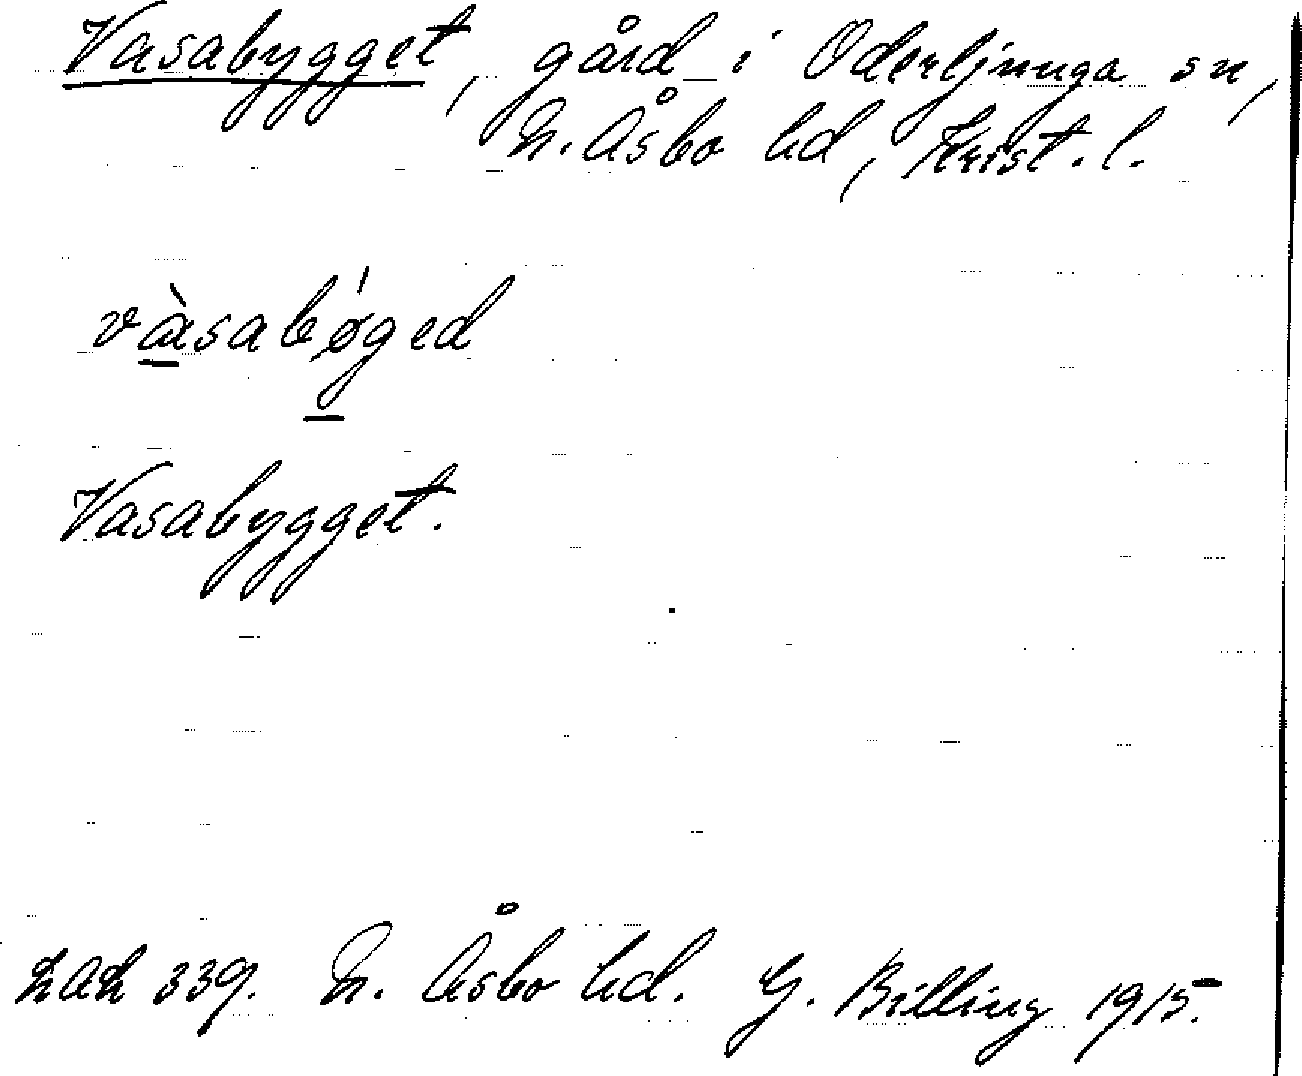 Vasabygget, gård i Oderljunga sn,
N. Åsbo hd, Krist. l.
vàsabǿged
Vasabygget.
LAL 339. N. Åsbo hd. G. Billing 1915.